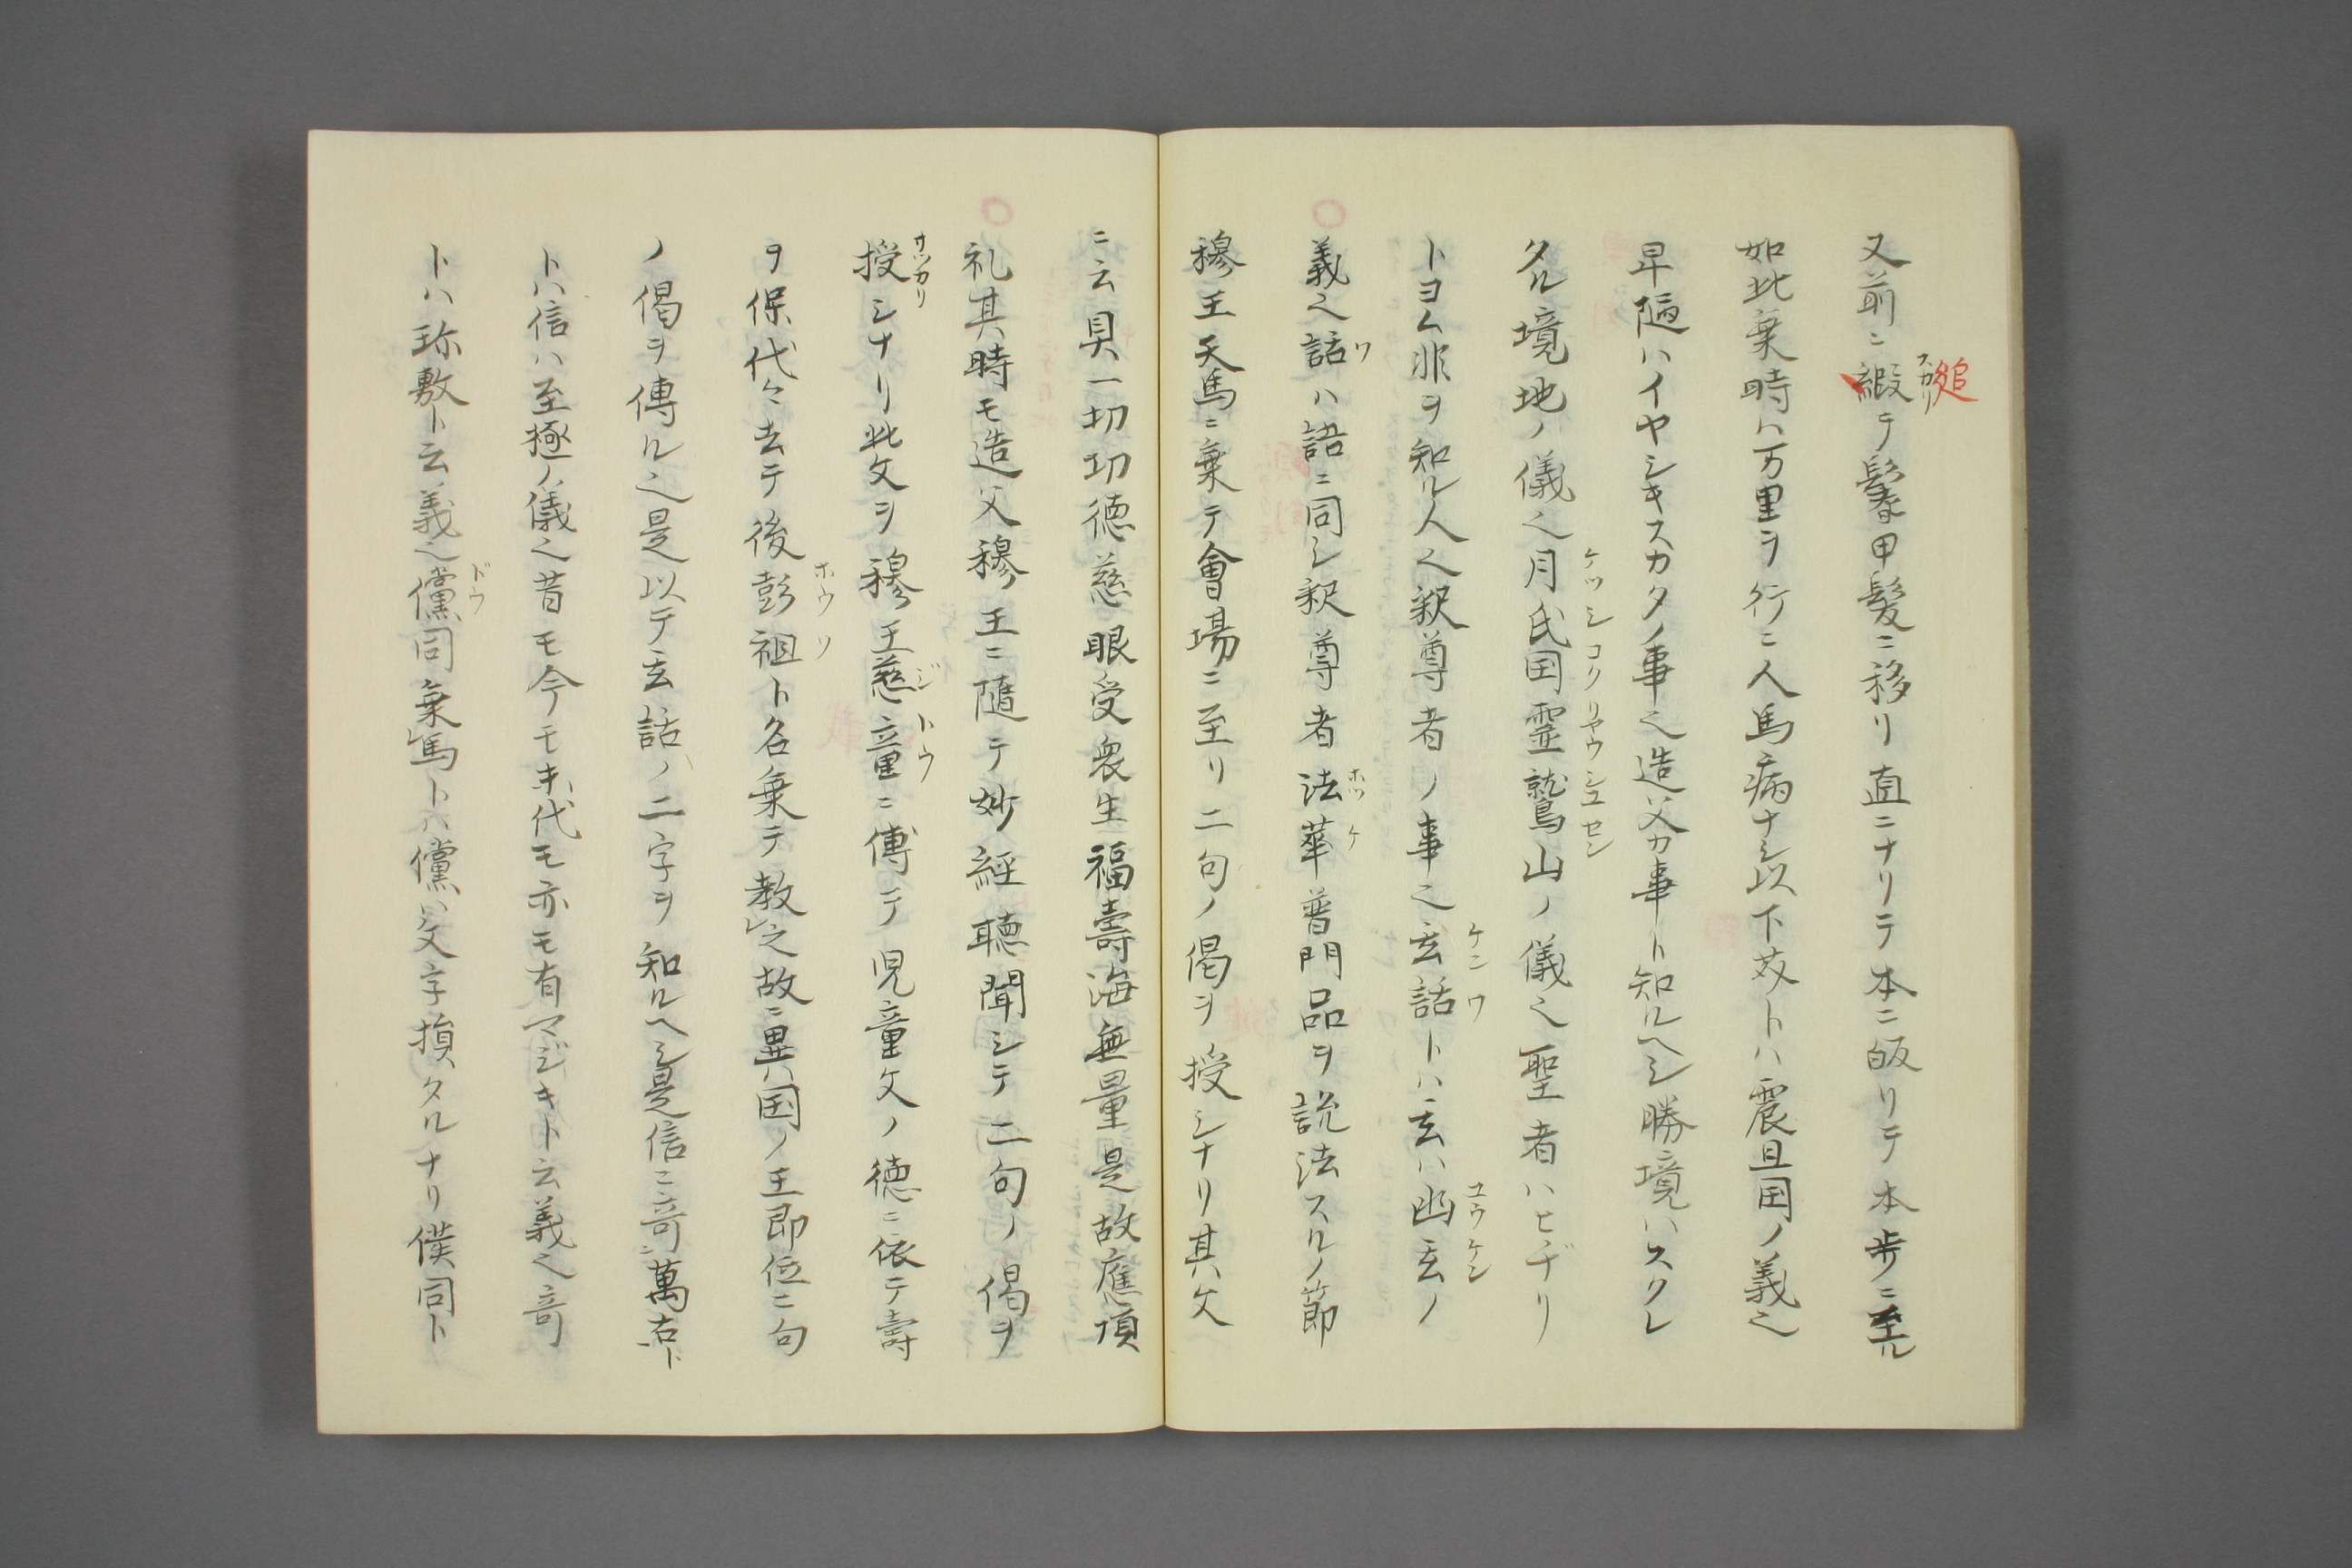 又前ニ縋スカリテ鬢甲髪ニ移リ直ニナリテ本ニ皈リテ本歩ニ至ル
如此乗時ハ万里ヲ行ニ人馬病ナシ以下文トハ震旦国ノ義之
卑陋ハイヤシキスカタノ事之造父カ事ト知ルヘシ勝境ハスクレ
タル境地ノ儀之月氏国霊鷲山ケツシコクリヤウシユセンノ儀之聖者ハヒヂリ
トヨム非ヲ知ル人之釈尊者ノ事之玄話ケンワトハ玄ハ幽玄ユウケンノ
義之話ワハ語ニ同シ釈尊者法華ホツケ普門品ヲ説法スルノ節
穆王天馬ニ乗テ會場ニ至リ二句ノ偈ヲ授シナリ其文
ニ云具一切功徳慈眼受衆生福壽海無量是故應頂
礼其時モ造父穆王ニ隨テ妙経聴聞シテ二句ノ偈ヲ
授サツカリシナリ此文ヲ穆王慈童ジトウニ傳テ児童文ノ徳ニ依テ壽
ヲ保代々去テ後彭祖ホウソト名乗テ教レ之故ニ異国ノ王即位ニ句
ノ偈ヲ傳ル之是以テ玄話ノ二字ヲ知ルヘシ是信ニ奇ニ萬古ト
トハ信ハ至極ノ儀之昔モ今モ末代モ亦モ有マジキト云義之奇
トハ珎敷ト云義之儻ドウ同乗レ馬トハ儻ハ文字損タルナリ僕同ト
追